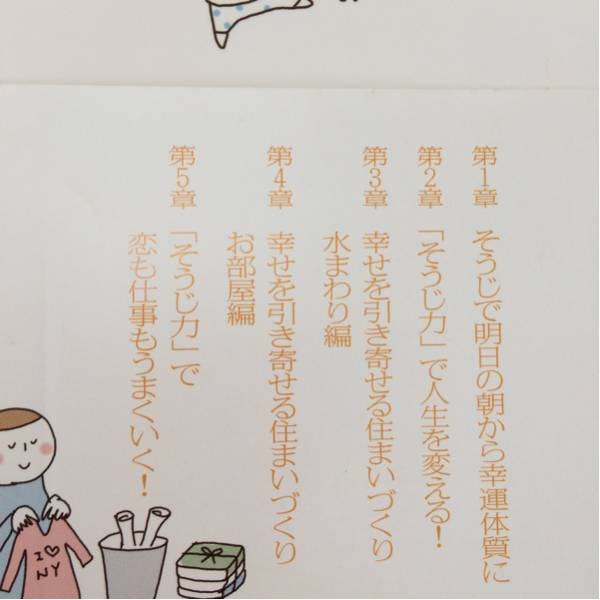 第1章 そうじで明日の朝から幸運体質に
第2章 「そうじ力」で人生を変える！
第3章 幸せを引き寄せる住まいづくり
水まわり編
第4章 幸せを引き寄せる住まいづくり
お部屋編
第5章 「そうじ力」で
恋も仕事もうまくいく！
I♡
NY